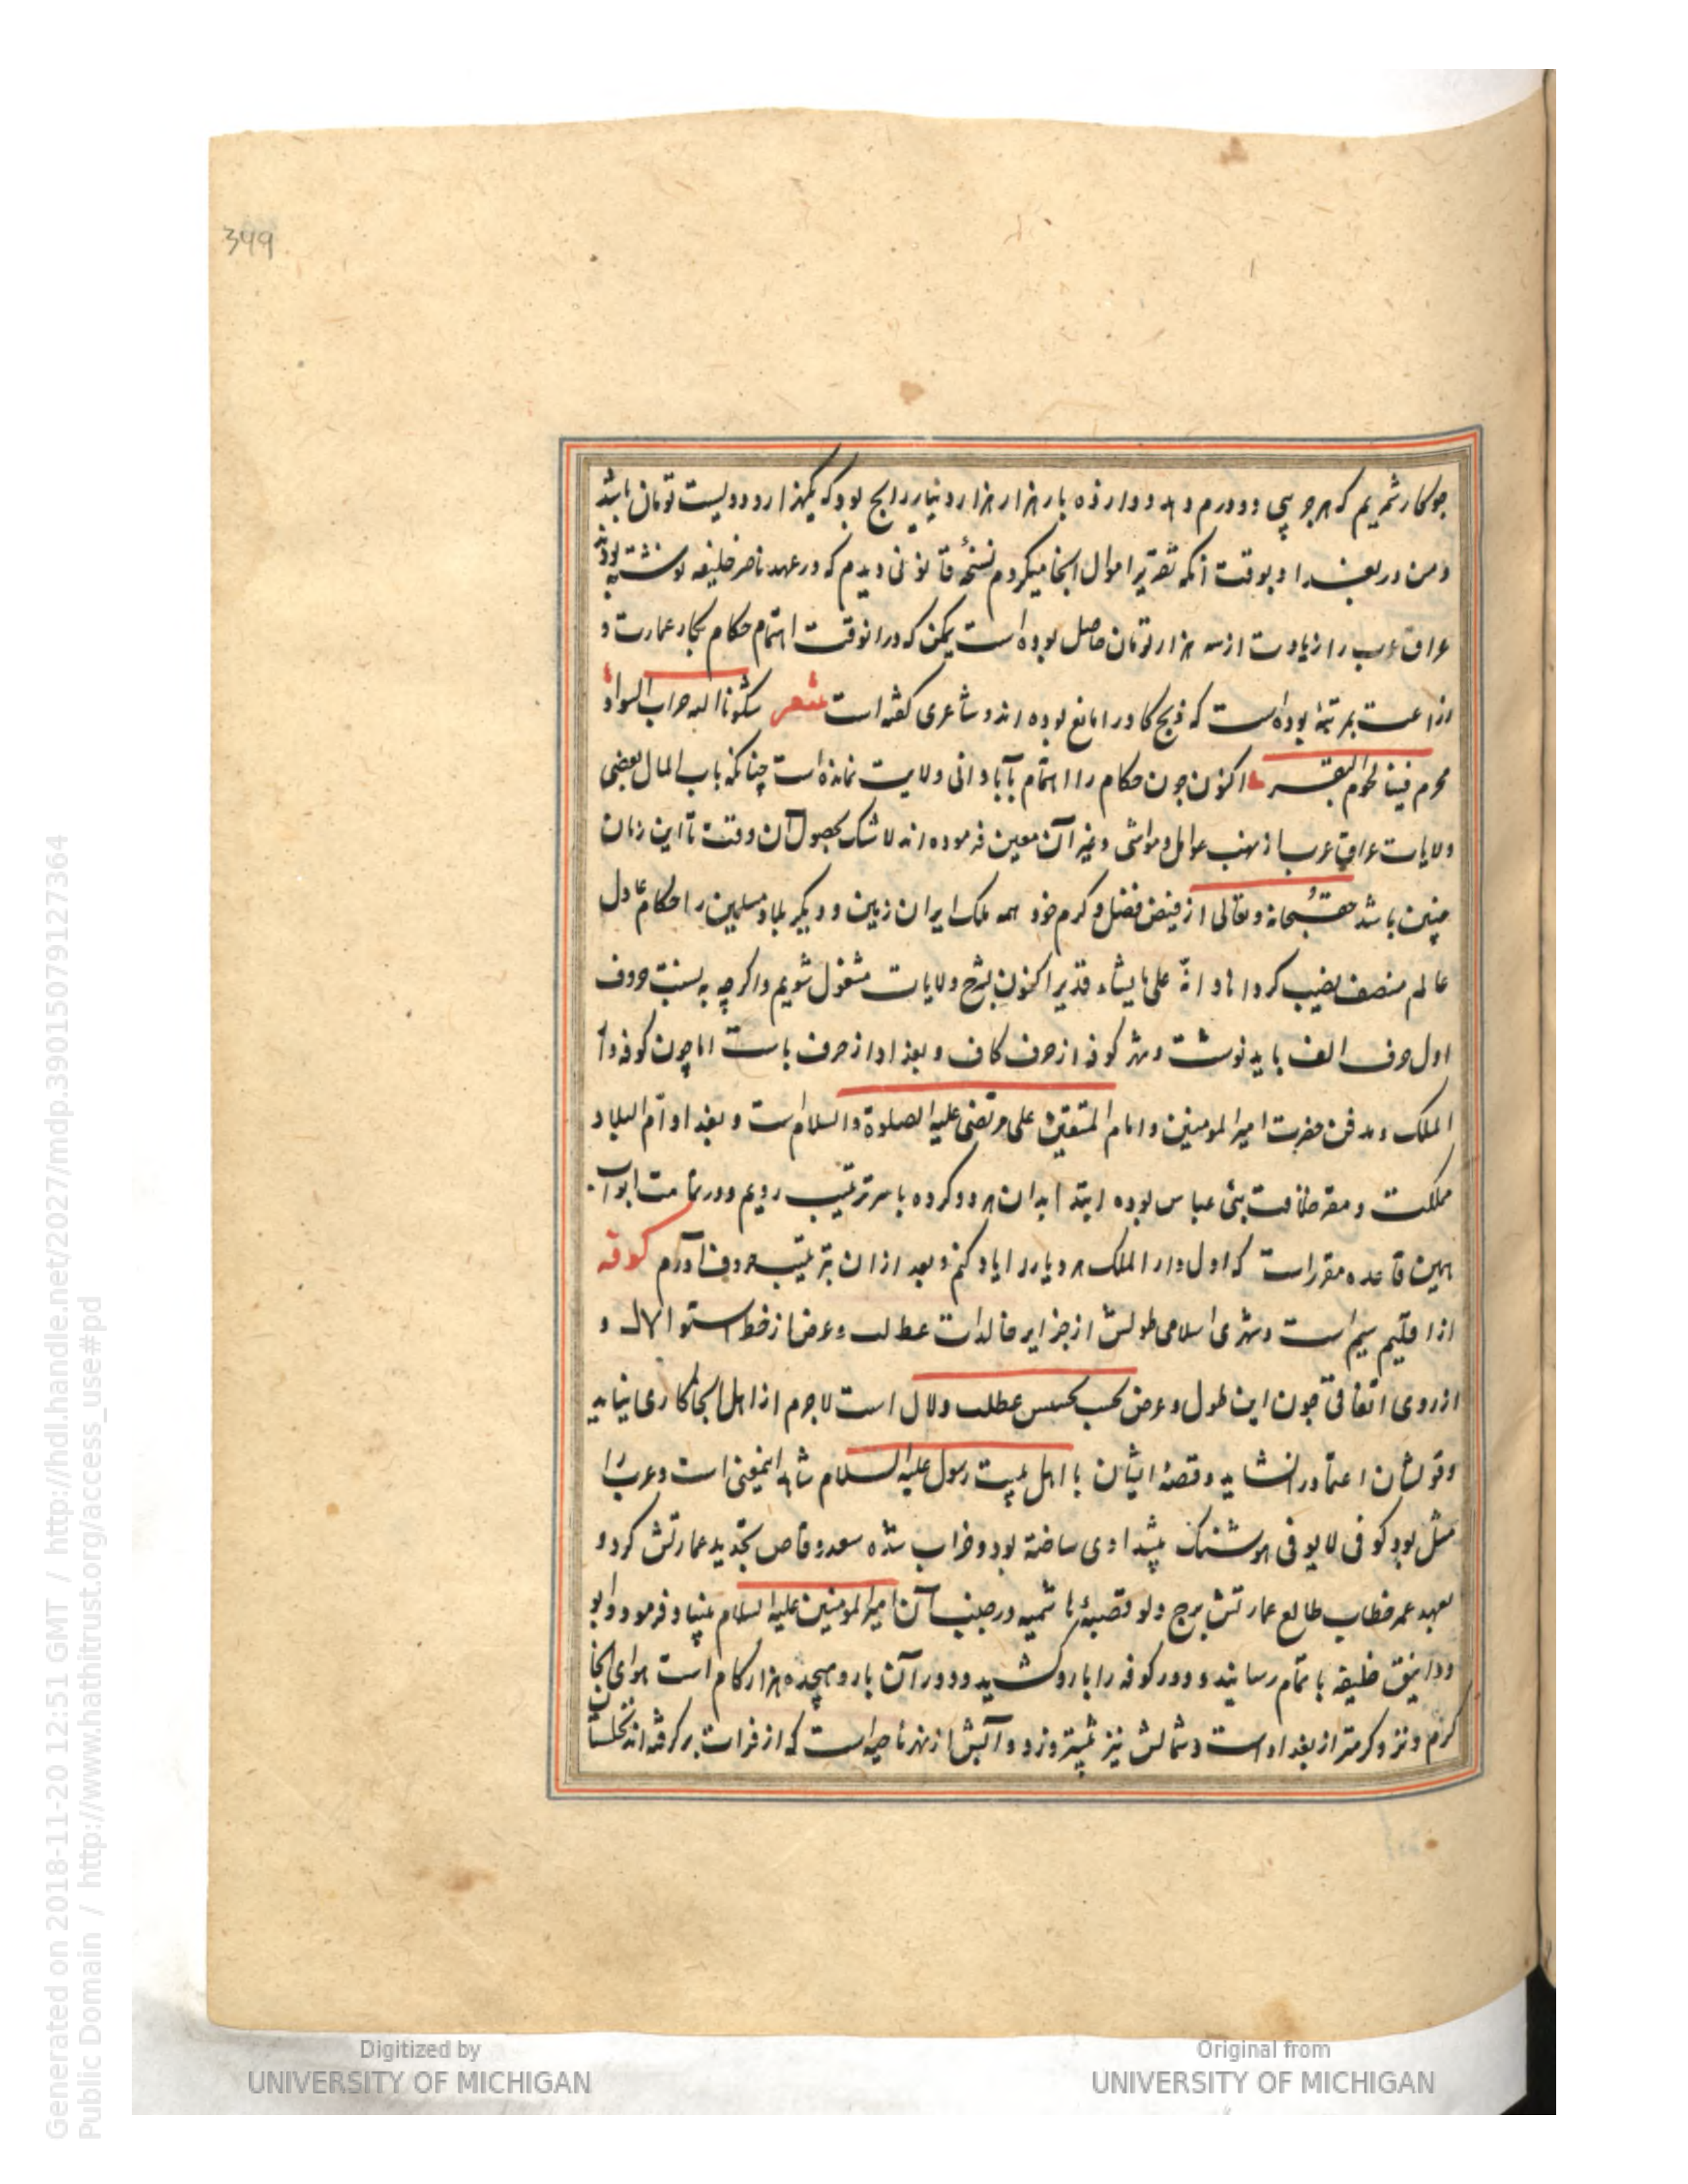 399
جو کار شمریم که هر جو پی دو درم دهد دوازده بار هزار هزار دینار رایج بود که یکهزار و دویست تومان باشد
و من در بغداد بوقت آنکه تقریر اموال آنجا میکردم نسخه قانونی دیدم که در عهد ناصر خلیفه نوشته بودند
عراق عرب را زیادت از سه هزار تومان حاصل بوده است یمکن که در انوقت اهتمام حکام بکار عمارت و
زراعت بمرتبه بوده است که ذبح کاو را مانع بوده اند و شاعری کفته است شعر شکونا الیه خراب السواد
فحرم فینا لحوم البقر اکنون چون حکام را اهتمام بآبادانی ولایت نمانده است چنانکه باب المال بعضی
ولایات عراق عرب از نهب عوامل و مواشی و غیر آن معین فرموده اند لاشک بحصول آن وقت تا این زمان
چنین باشد حق سبحانه و تعالی از فیض فضل و کرم خود همه ملک ایران زمین و دیکر بلاد مسلمین را حکام عادل
عالم منصف نصیب کرداناد انه علی ما یشاء قدیر اکنون بشرح ولایات مشغول شویم و اکر چه به نسبت حروف
اول حرف الف باید نوشت و شهر کوفه از حرف کاف و بغداد از حرف باست اما چون کوفه دار
الملک و مدفن حضرت امیر المومنین و امام المتقین علی مرتضی علیه الصلوة والسلام است و بغداد ام البلاد
مملکت و مقر خلافت بنی عباس بوده ابتدا بدان هر دو کرده با سر ترتیب رویم و در تمامت ابواب
همین قاعده مقرر است که اول دار الملک هر دیار را یاد کنم و بعد از ان بترتیب حروف آورم کوفه
از اقلیم سیم است و شهری اسلامی طولش از جزایر خالدات عط لب و عرض از خط استوا لا ل و
از روی اتفاقی چون این طول و عرض بحسب عطلب ولال است لاجرم از اهل آنجا کاری نیاید
و قولشان اعتماد را نشاید و قصه ایشان با اهل بیت رسول علیه السلام شاهد اینمعنی است و عرب را
مثل بود کوفی لا یوفی هوشنک پیشدادی ساخته بود و خراب شده سعد وقاص تجدید عمارتش کرد و
بعهد عمر خطاب طالع عمارتش برج دلو آن امیر المومنین علیه السلام بنیاد فرمود و ابو
دوانیق خلیفه باتمام رسانید و دور کوفه را بارو کشید و دور آن بارو هیجده هزار کام است هوای آنجا
کرم و کرمتر از بغداد است و شمالش نیز بیشتر وزد و آبش از نهر ناحیه است که از فرات بر کرفته اند نخلستان
Generated on 2018-11-20 12:51 GMT / http://hdl.handle.net/2027/mdp.39015079127364
Public Domain / http://www.hathitrust.org/access_use#pd
Digitized by
UNIVERSITY OF MICHIGAN
Original from
UNIVERSITY OF MICHIGAN